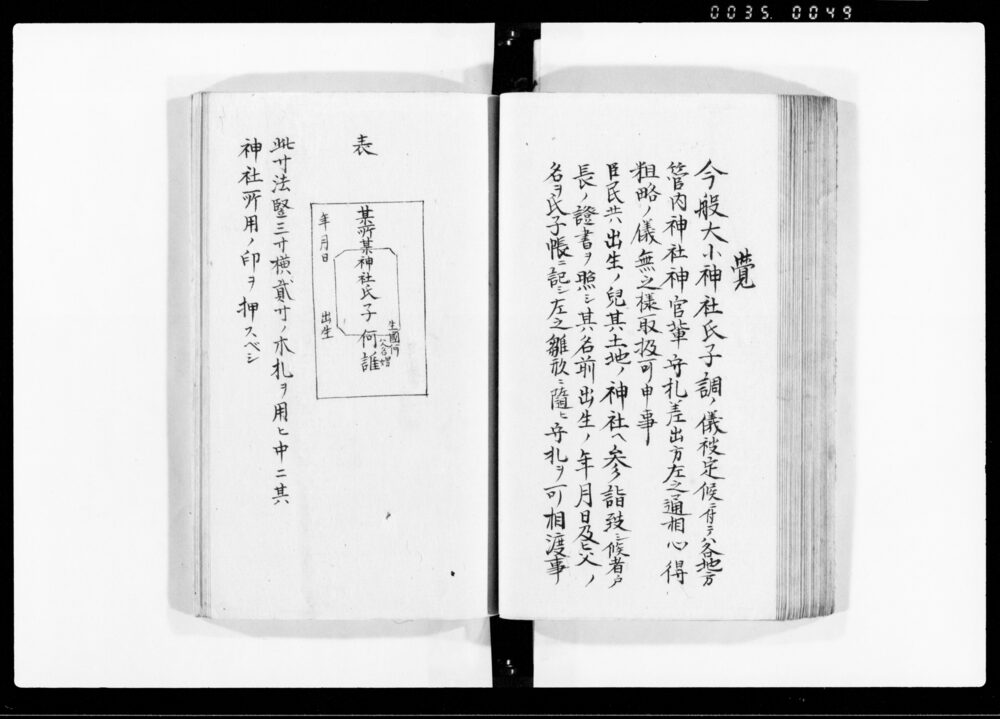 0035. 0049
覺
今般大小神社氏子調ノ儀被定候ニ付テハ各地方
管内神社神官輩守札差出方左之通相心得
粗略ノ儀無之樣取扱可申事
臣民共出生ノ兒其土地ノ神社ヘ參詣致シ候者戸
長ノ證書ヲ照シ其名前出生ノ年月日及ヒ父ノ
名ヲ氏子帳ニ記シ左之雛形ニ隨ヒ守札ヲ可相渡事
表
某所某神社氏子 何誰
生國何
年月日 出生
此寸法竪三寸横貳寸ノ木札ヲ用ヒ中ニ其
神社所用ノ印ヲ押スベシ